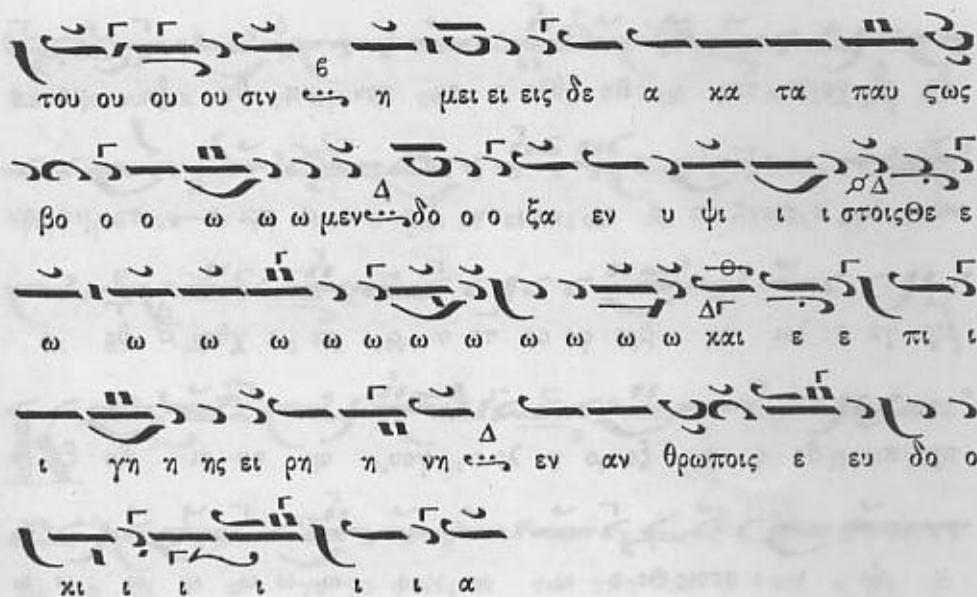 του ου ου ου σιν η μει ει εις δε α κα τα παυ ϛως
βο ο ο ω ω ω μεν δο ο ο ξα εν υ ψι ι ι στοις Θε ε
ω ω ω ω ω ω ω ω ω ω ω ω και ε ε πι ι
ι γη η ης ει ρη η νη εν αν θρωποις ε ευ δο ο
κι ι ι ι ι ι α